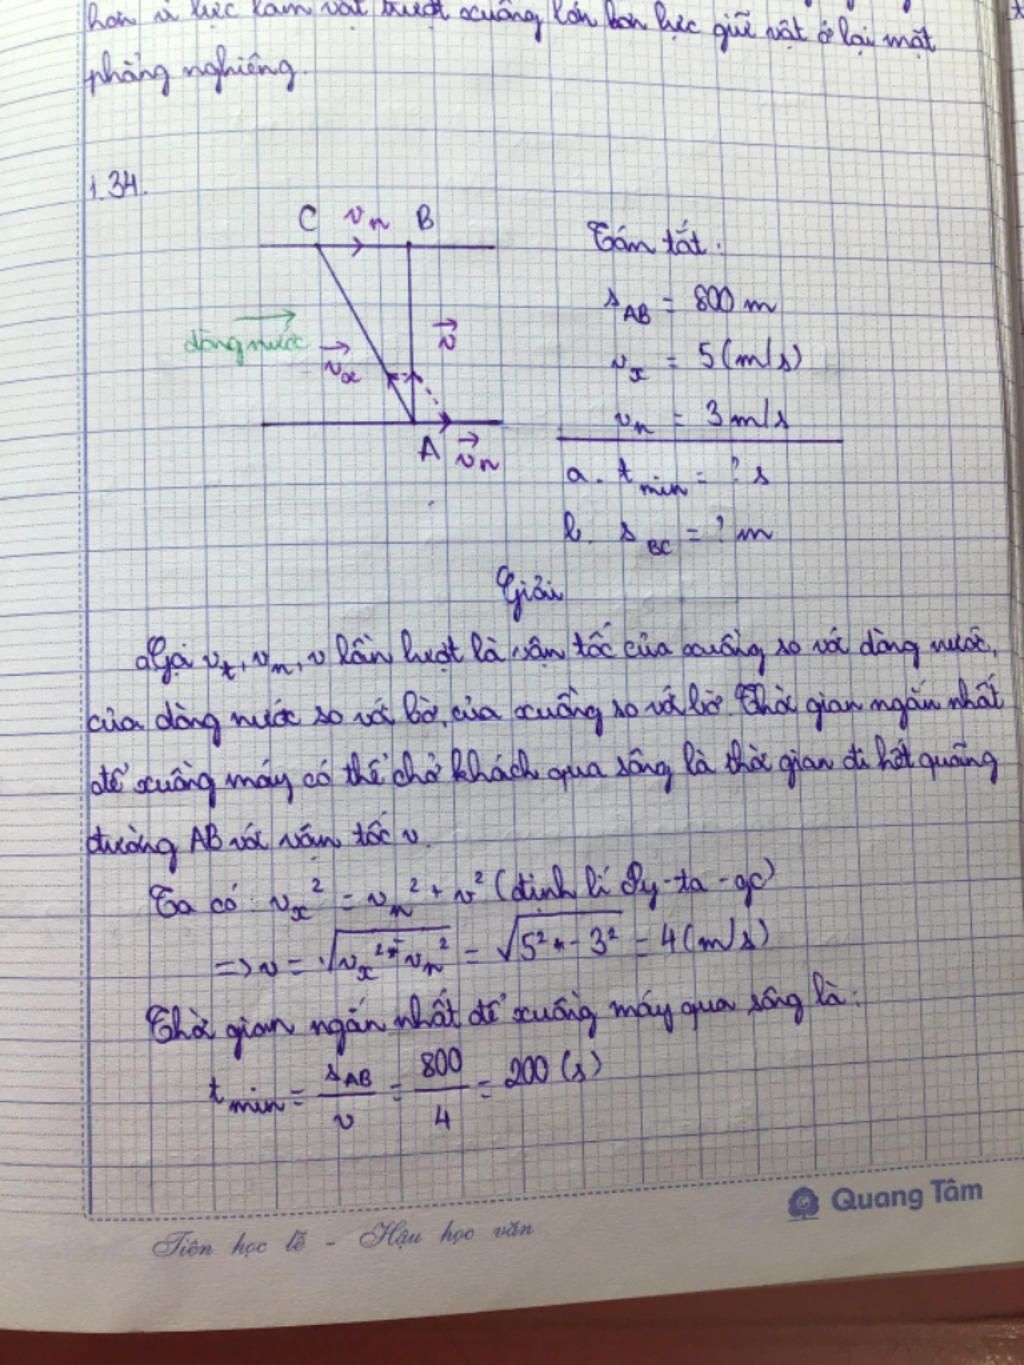 hơn vì lực làm vật trượt xuống lớn hơn lực giữ vật ở lại mặt
phẳng nghiêng.
1.34.
C vn B
Tóm tắt:
sAB = 800 m
dòng nước
vx
v
vx = 5 (m/s)
vn = 3 m/s
A vn
a. tmin = ? s
b. sBC = ? m
Giải
a Gọi vt, vn, v lần lượt là vận tốc của xuồng so với dòng nước,
của dòng nước so với bờ, của xuồng so với bờ. Thời gian ngắn nhất
để xuồng máy có thể chở khách qua sông là thời gian đi hết quãng
đường AB với vận tốc v.
Ta có: vx² = vn² + v² (định lí Py-ta-go)
=> v = √(vx² - vn²) = √(5² - 3²) = 4 (m/s)
Thời gian ngắn nhất để xuồng máy qua sông là:
tmin = sAB/v = 800/4 = 200 (s)
Quang Tâm
Tiên học lễ - Hậu học văn